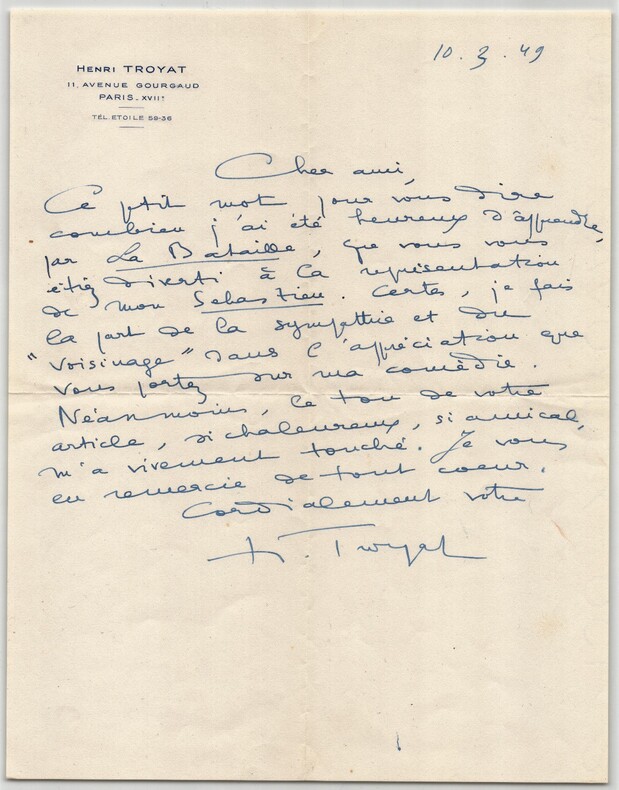 10.3.49
HENRI TROYAT
11, AVENUE GOURGAUD
PARIS. XVIIᵉ
TÉL. ETOILE 59-36
Cher ami,
Ce petit mot pour vous dire
combien j'ai été heureux d'apprendre,
par La Bataille, que vous vous
étiez diverti à la représentation
de mon Sébastien. Certes, je fais
la part de la sympathie et du
"voisinage" dans l'appréciation que
vous portez sur ma comédie.
Néanmoins, le ton de votre
article, si chaleureux, si amical,
m'a vivement touché. Je vous
en remercie de tout coeur.
Cordialement votre
H. Troyat